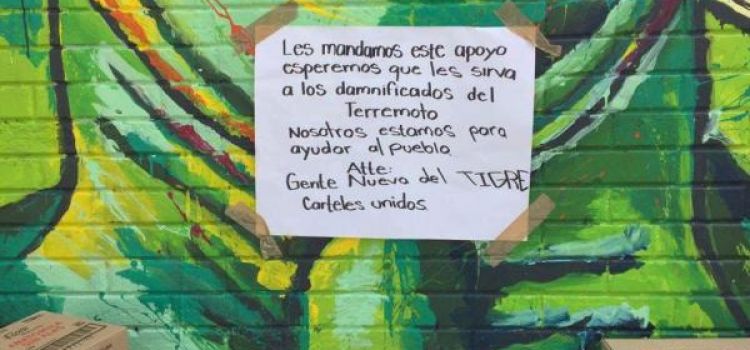 Les mandamos este apoyo
esperemos que les sirva
a los damnificados del
Terremoto
Nosotros estamos para
ayudar al pueblo.
Atte:
Gente Nueva del TIGRE
Carteles unidos